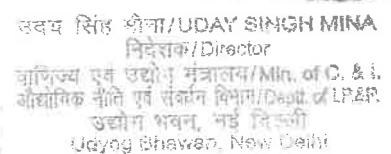 उदय सिंह मीना/UDAY SINGH MINA
निदेशक/Director
वाणिज्य एवं उद्योग मंत्रालय/Min. of C. & I.
औद्योगिक नीति एवं संवर्धन विभाग/Deptt. of I.P.&P.
उद्योग भवन, नई दिल्ली
Udyog Bhawan, New Delhi